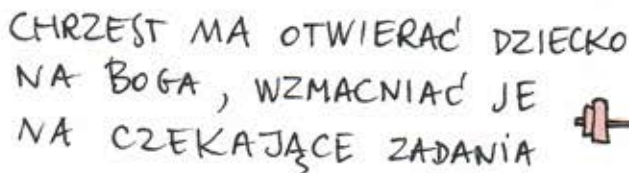 CHRZEST MA OTWIERAĆ DZIECKO
NA BOGA, WZMACNIAĆ JE
NA CZEKAJĄCE ZADANIA